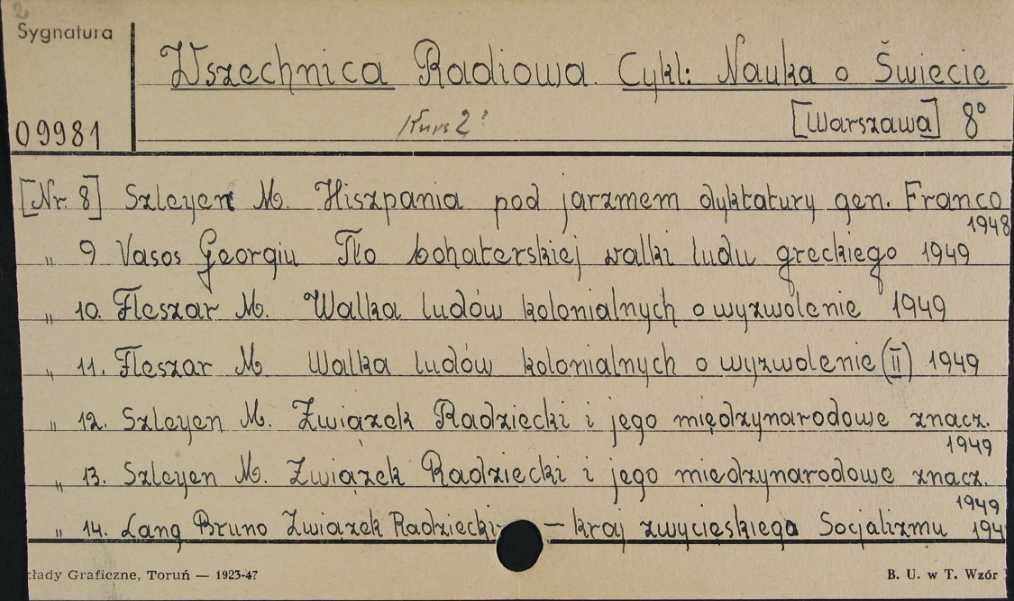 Sygnatura
Wszechnica Radiowa. Cykl: Nauka o Świecie
09981 Kurs 2? [Warszawa] 8°
[Nr. 8] Szleyen M. Hiszpania pod jarzmem dyktatury gen. Franco
1948
„ 9 Vasos Georgiu Tło bohaterskiej walki ludu greckiego 1949
„ 10. Fleszar M. Walka ludów kolonialnych o wyzwolenie 1949
„ 11. Fleszar M. Walka ludów kolonialnych o wyzwolenie (II) 1949
„ 12. Szleyen M. Związek Radziecki i jego międzynarodowe znacz.
1949
„ 13. Szleyen M. Związek Radziecki i jego miedzynarodowe znacz.
1949
„ 14. Lang Bruno Związek Radziecki — kraj zwycieskiego Socjalizmu 194
kłady Graficzne, Toruń — 1923-47 B. U. w T. Wzór